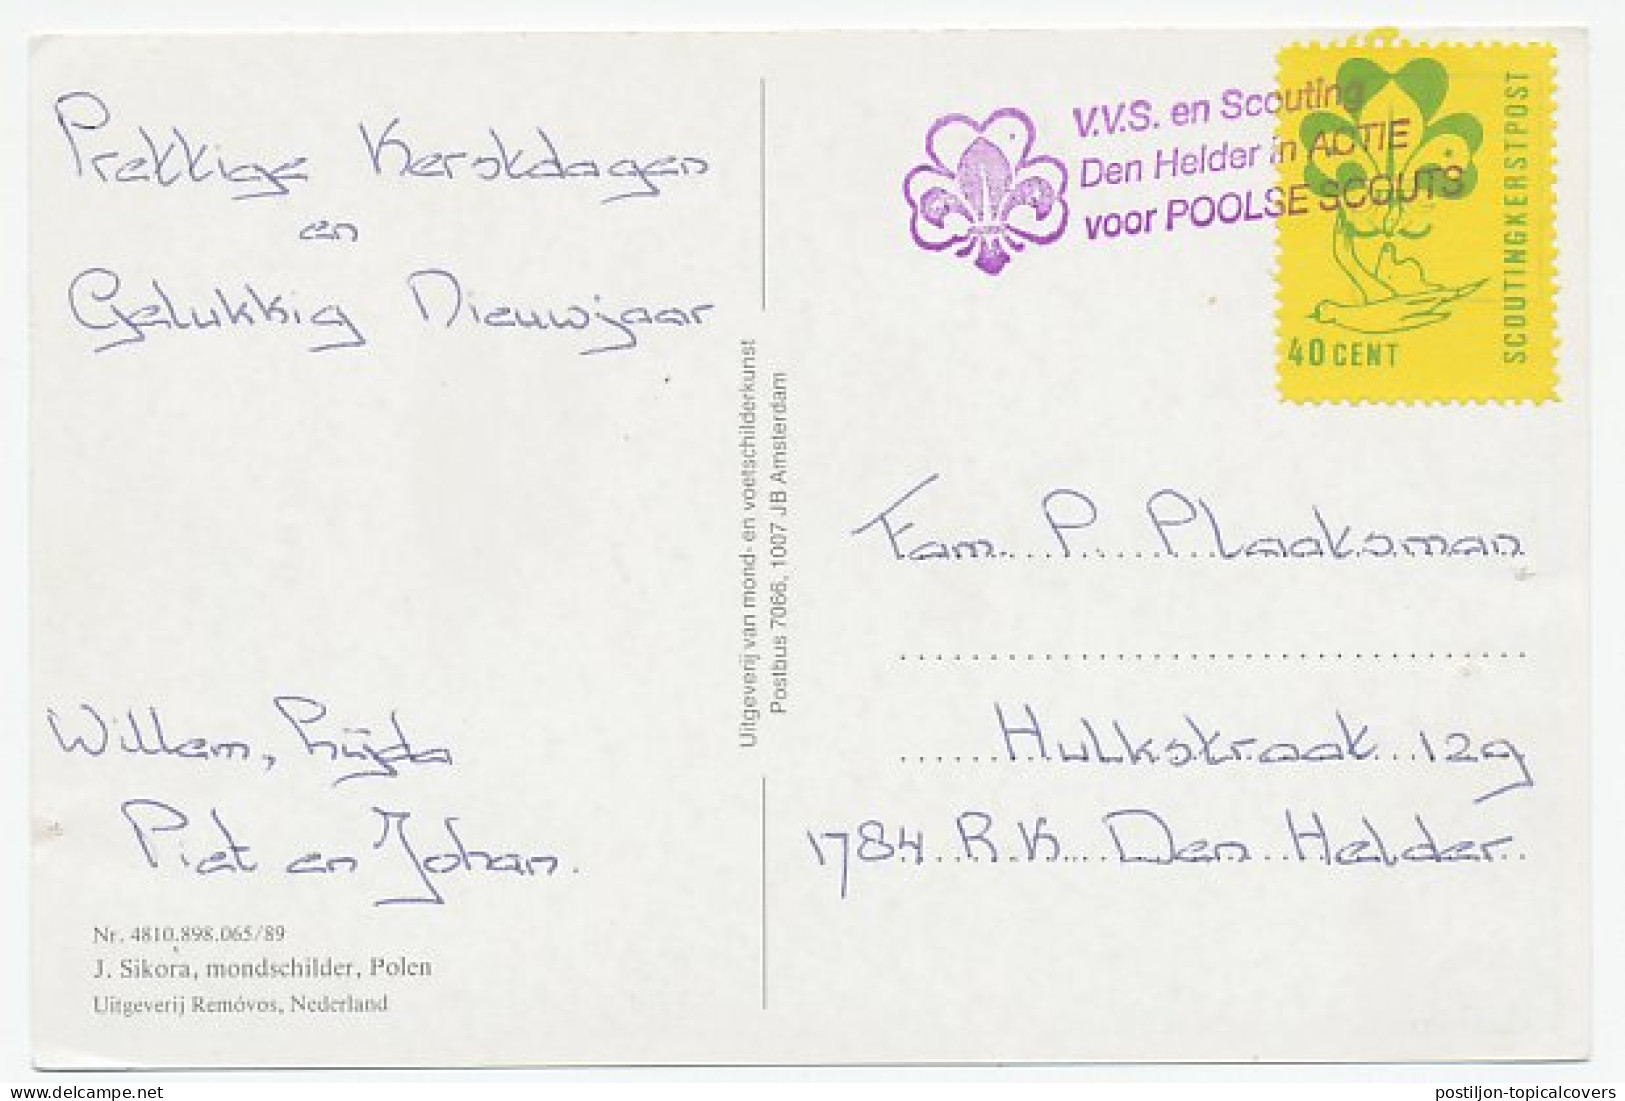 Prettige Kerstdagen
en
Gelukkig Nieuwjaar
Willem, Lijda
Piet en Johan.
Nr. 4810.898.065/89
J. Sikora, mondschilder, Polen
Uitgeverij Remóvos, Nederland
Uitgeverij van mond- en voetschilderkunst
Postbus 7066, 1007 JB Amsterdam
V.V.S. en Scouting
Den Helder in ACTIE
voor POOLSE SCOUTS
SCOUTINGKERSTPOST
40 CENT
Fam. P. Plaaksman
Hulkstraat 129
1784 R.K. Den Helder.
postiljon-topicalcovers